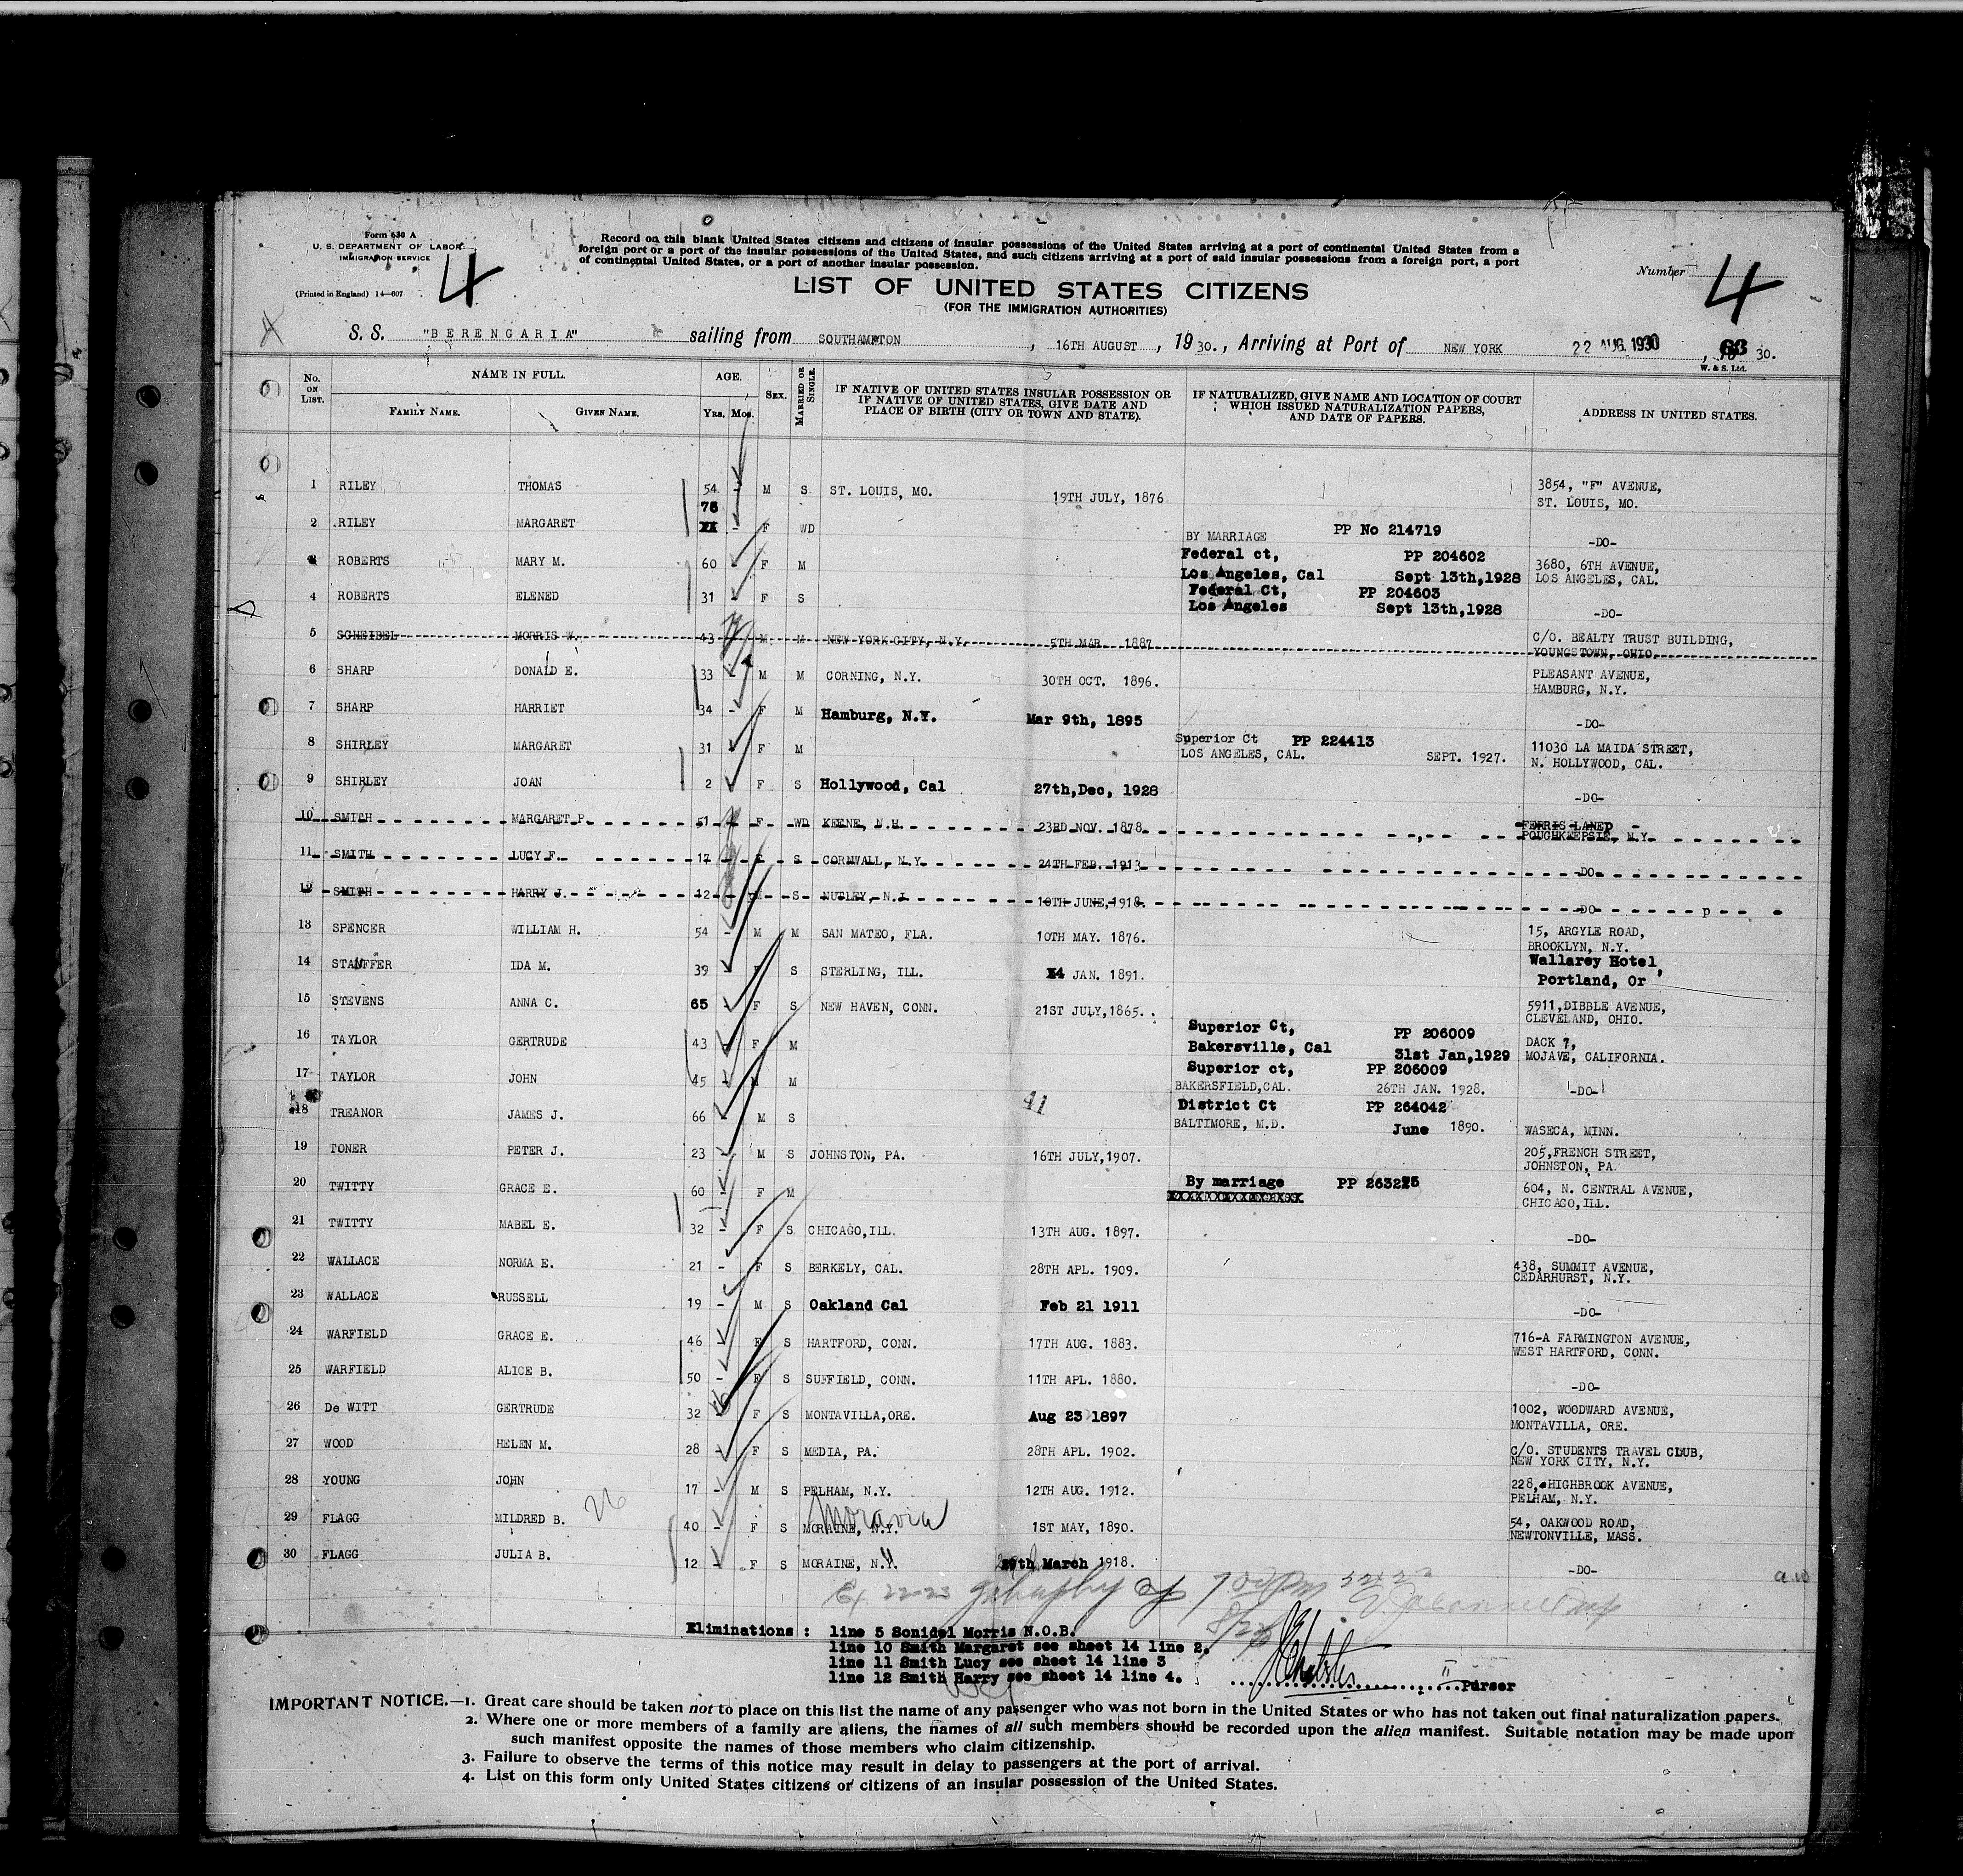 Form 630 A
U. S. DEPARTMENT OF LABOR
IMMIGRATION SERVICE
(Printed in England) 14—607
4
Record on this blank United States citizens and citizens of insular possessions of the United States arriving at a port of continental United States from a
foreign port or a port of the insular possessions of the United States, and such citizens arriving at a port of said insular possessions from a foreign port, a port
of continental United States, or a port of another insular possession.
Number 4
LIST OF UNITED STATES CITIZENS
(FOR THE IMMIGRATION AUTHORITIES)
S. S. "BERENGARIA" sailing from SOUTHAMPTON, 16TH AUGUST, 1930., Arriving at Port of NEW YORK 22 AUG. 1930 30.
W. & S. Ltd.
No. ON LIST. NAME IN FULL. FAMILY NAME. GIVEN NAME. AGE. YRS. MOS. SEX. MARRIED OR SINGLE. IF NATIVE OF UNITED STATES INSULAR POSSESSION OR IF NATIVE OF UNITED STATES, GIVE DATE AND PLACE OF BIRTH (CITY OR TOWN AND STATE). IF NATURALIZED, GIVE NAME AND LOCATION OF COURT WHICH ISSUED NATURALIZATION PAPERS, AND DATE OF PAPERS. ADDRESS IN UNITED STATES.
1 RILEY THOMAS 54 - M S ST. LOUIS, MO. 19TH JULY, 1876 3854, "F" AVENUE,
ST. LOUIS, MO.
2 RILEY MARGARET 76 - F WD BY MARRIAGE PP No 214719 -DO-
ROBERTS MARY M. 60 - F M Federal ct, PP 204602 3680, 6TH AVENUE,
Los Angeles, Cal Sept 13th,1928 LOS ANGELES, CAL.
4 ROBERTS ELENED 31 - F S Federal Ct, PP 204603
Los Angeles Sept 13th,1928 -DO-
5 SCHEIBEL MORRIS W. 43 M M NEW YORK CITY, N.Y. 5TH MAR. 1887 C/O. BEALTY TRUST BUILDING,
YOUNGSTOWN, OHIO.
6 SHARP DONALD E. 33 - M M CORNING, N.Y. 30TH OCT. 1896. PLEASANT AVENUE,
HAMBURG, N.Y.
7 SHARP HARRIET 34 - F M Hamburg, N.Y. Mar 9th, 1895 -DO-
8 SHIRLEY MARGARET 31 F M Superior Ct PP 224413 11030 LA MAIDA STREET,
LOS ANGELES, CAL. SEPT. 1927. N. HOLLYWOOD, CAL.
9 SHIRLEY JOAN 2 F S Hollywood, Cal 27th,Dec, 1928 -DO-
10 SMITH MARGARET P. 51 F WD KEENE, N.H. 23RD NOV. 1878 FERRIS LANE
POUGHKEEPSIE, N.Y.
11 SMITH LUCY F. 17 F S CORNWALL, N.Y. 24TH FEB. 1913 -DO-
12 SMITH HARRY J. 12 M S NUTLEY, N.J. 10TH JUNE,1918. -DO-
13 SPENCER WILLIAM H. 54 - M M SAN MATEO, FLA. 10TH MAY. 1876. 15, ARGYLE ROAD,
BROOKLYN, N.Y.
14 STAUFFER IDA M. 39 - F S STERLING, ILL. 14 JAN. 1891. Wallarey Hotel,
Portland, Or
15 STEVENS ANNA C. 65 - F S NEW HAVEN, CONN. 21ST JULY,1865. 5911,DIBBLE AVENUE,
CLEVELAND, OHIO.
16 TAYLOR GERTRUDE 43 - F M Superior Ct, PP 206009 DACK 7,
Bakersville, Cal 31st Jan,1929 MOJAVE, CALIFORNIA.
17 TAYLOR JOHN 45 - M M Superior ct, PP 206009
BAKERSFIELD,CAL. 26TH JAN. 1928. -DO-
18 TREANOR JAMES J. 66 - M S 41 District Ct PP 264042
BALTIMORE, M.D. June 1890. WASECA, MINN.
19 TONER PETER J. 23 - M S JOHNSTON, PA. 16TH JULY,1907. 205,FRENCH STREET,
JOHNSTON, PA.
20 TWITTY GRACE E. 60 - F M By marriage PP 263225 604, N. CENTRAL AVENUE,
CHICAGO,ILL.
21 TWITTY MABEL E. 32 - F S CHICAGO,ILL. 13TH AUG. 1897. -DO-
22 WALLACE NORMA E. 21 - F S BERKELY, CAL. 28TH APL. 1909. 438, SUMMIT AVENUE,
CEDARHURST, N.Y.
23 WALLACE RUSSELL 19 - M S Oakland Cal Feb 21 1911 -DO-
24 WARFIELD GRACE E. 46 - F S HARTFORD, CONN. 17TH AUG. 1883. 716-A FARMINGTON AVENUE,
WEST HARTFORD, CONN.
25 WARFIELD ALICE B. 50 - F S SUFFIELD, CONN. 11TH APL. 1880. -DO-
26 De WITT GERTRUDE 32 - F S MONTAVILLA,ORE. Aug 23 1897 1002, WOODWARD AVENUE,
MONTAVILLA, ORE.
27 WOOD HELEN M. 28 - F S MEDIA, PA. 28TH APL. 1902. C/O. STUDENTS TRAVEL CLUB,
NEW YORK CITY, N.Y.
28 YOUNG JOHN 17 - M S PELHAM, N.Y. 12TH AUG. 1912. 228, HIGHBROOK AVENUE,
PELHAM, N.Y.
Moravia
29 FLAGG MILDRED B. 26 40 - F S MORAINE, N.Y. 1ST MAY, 1890. 54, OAKWOOD ROAD,
NEWTONVILLE, MASS.
30 FLAGG JULIA B. 12 - F S MORAINE, N.Y. March 1918. -DO-
Eliminations : line 5 Sonidel Morris N.O.B.
line 10 Smith Margaret see sheet 14 line 2.
line 11 Smith Lucy see sheet 14 line 3
line 12 Smith Harry see sheet 14 line 4.
Purser
IMPORTANT NOTICE.—1. Great care should be taken not to place on this list the name of any passenger who was not born in the United States or who has not taken out final naturalization papers.
2. Where one or more members of a family are aliens, the names of all such members should be recorded upon the alien manifest. Suitable notation may be made upon
such manifest opposite the names of those members who claim citizenship.
3. Failure to observe the terms of this notice may result in delay to passengers at the port of arrival.
4. List on this form only United States citizens or citizens of an insular possession of the United States.